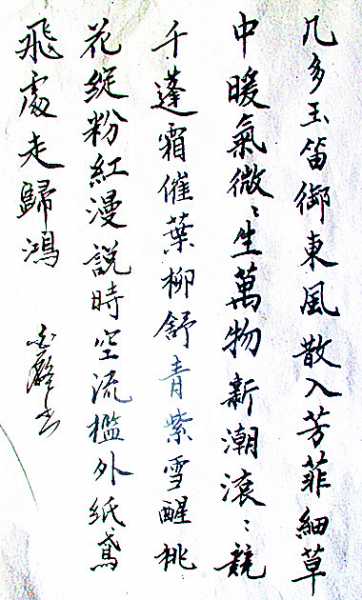 几多玉笛御東風散入芳菲細草
中暖氣微〻生萬物新潮滚〻競
千蓬霜催葉柳舒青紫雪醒桃
花綻粉紅漫說時空流檻外紙鳶
飛處走歸鴻